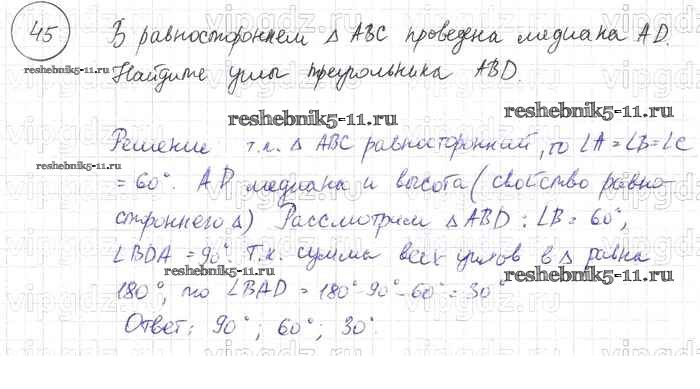 45 В равностороннем Δ ABC проведена медиана AD.
reshebnik5-11.ru Найдите углы треугольника ABD. reshebnik5-11.ru
reshebnik5-11.ru
Решение т.к. Δ ABC равносторонний, то ∠A = ∠B = ∠C
reshebnik5-11.ru
= 60°. AD медиана и высота (свойство равно-
стороннего Δ) Рассмотрим Δ ABD: ∠B = 60°,
∠BDA = 90°. Т.к. сумма всех углов в Δ равна
reshebnik5-11.ru reshebnik5-11.ru
180°, то ∠BAD = 180°-90°-60° = 30°
Ответ: 90°; 60°; 30°.
vipgdz.ru